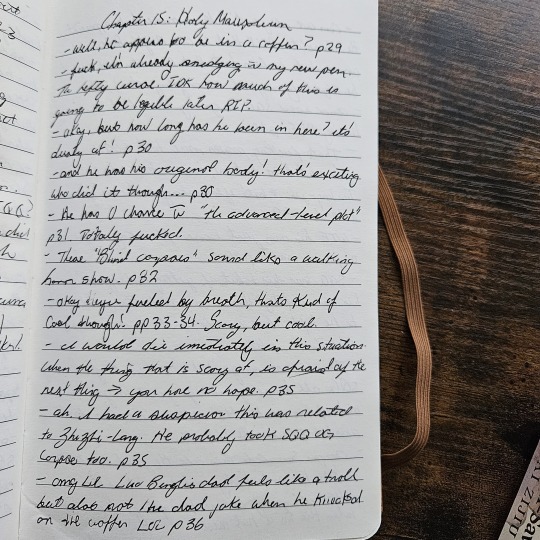 Chapter 15: Holy Mausoleum
- well, he appears to be in a coffin? p29
- fuck, I'm already smudging w my new pen.
The lefty curse. IDK how much of this is
going to be legible later RIP.
- okay, but how long has he been in here? it's
dusty af! p30
- and he has his original body! that's exciting
who did it though... p30
- He has 0 chance in "the advanced-level plot"
p31. Totally fucked.
- These "Blind corpses" sound like a walking
horror show. p32
- okay they're fueled by breath, thats kind of
cool though! pp 33-34. Scary, but cool.
- I would die imediately in this situation.
when the thing that is scary af, is afraid of the
next thing → you have no hope. p35
- ah. I had a suspicion this was related
to Zhuzhi-Lang. He probably took SQQ OG
corpse too. p35
- omg LOL Luo Binghe's dad feels like a troll
but also not the dad joke when he knocked
on the coffin LOL p36